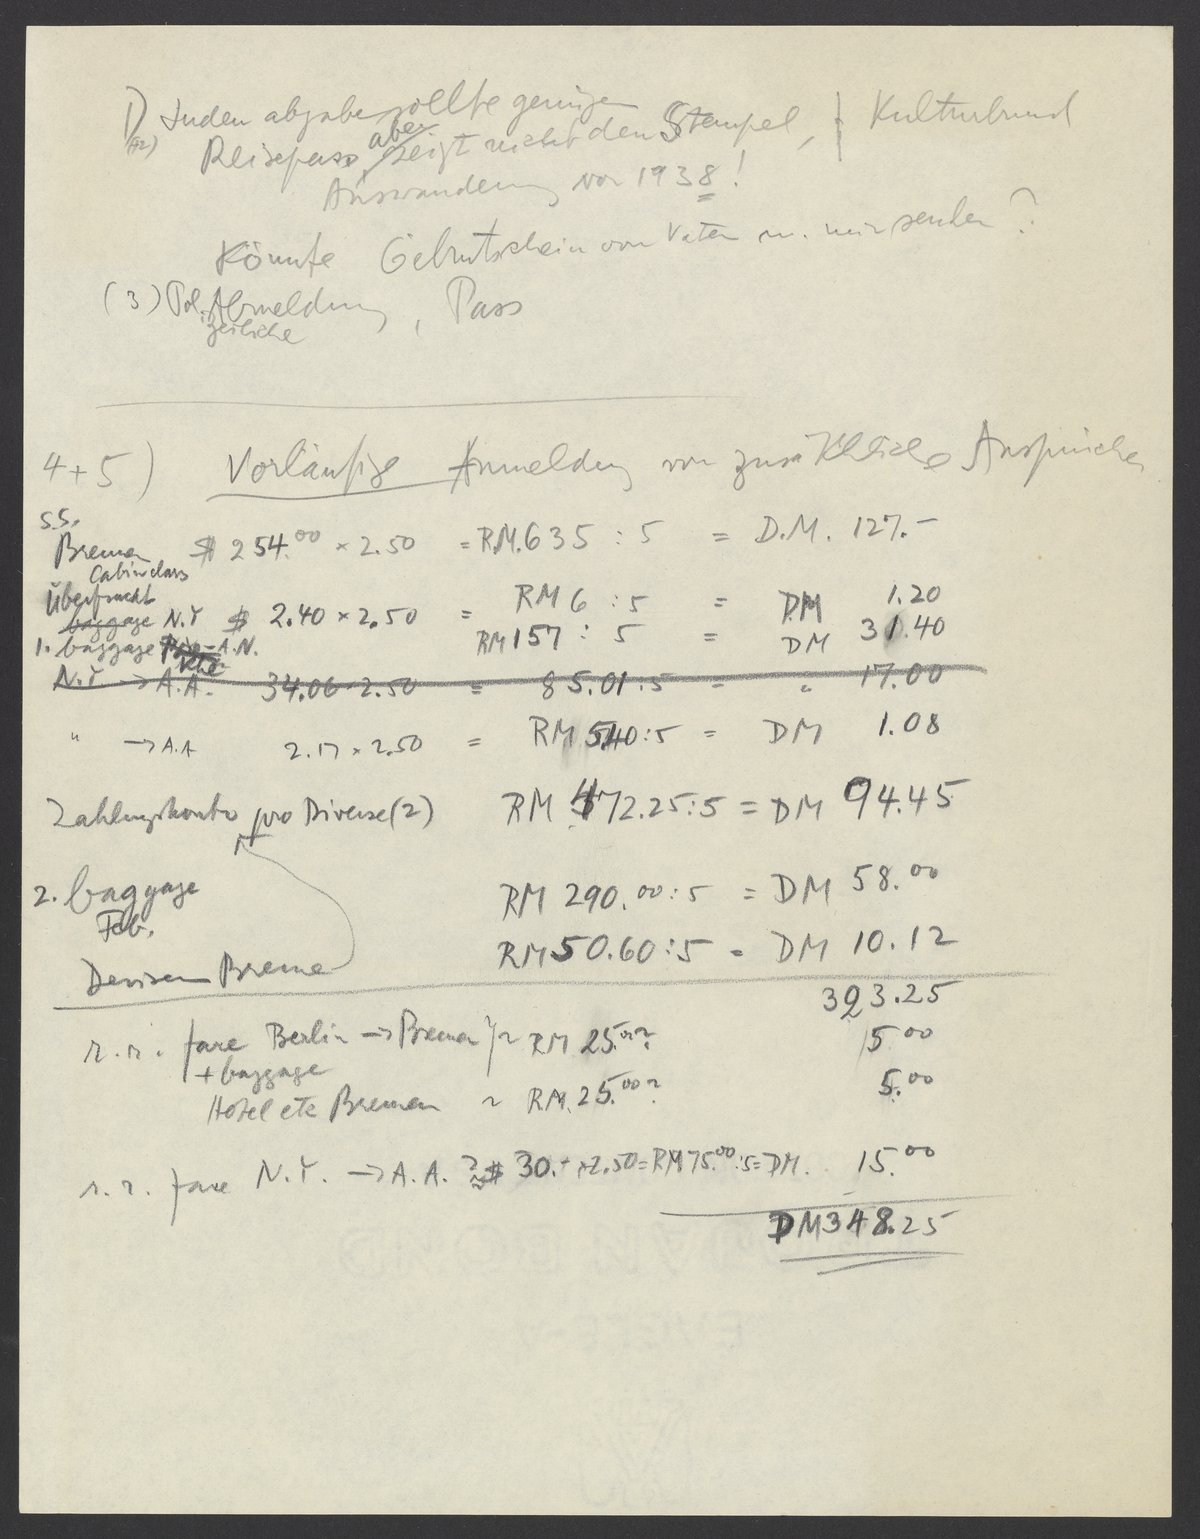 1) Judenabgabe sollte genügen
(2) Reisepass, aber zeigt nicht den Stempel, } Kulturbund
Auswanderung vor 1938!
Könnte Geburtschein von Vater u. mir senden?
(3) Polizeiliche Abmeldung, Pass
4+5) Vorläufige Anmeldung von zusätzliche Ansprüche
S.S.
Bremen $ 254.00 × 2.50 = RM. 635 : 5 = D.M. 127.-
Cabin class
Überfracht
baggage N.Y $ 2.40 × 2.50 = RM 6 : 5 = DM 1.20
1. baggage A.N. RM 157 : 5 = DM 31.40
N.Y → A.A. 34.06 × 2.50 = 85.01 : 5 = " 17.00
" → A.A 2.17 × 2.50 = RM 540 : 5 = DM 1.08
Zahlungskonto pro Diverse (2) RM 472.25 : 5 = DM 94.45
2. baggage RM 290.00 : 5 = DM 58.00
Feb.
Devisen Breme RM 50.60 : 5 = DM 10.12
323.25
r.r. fare Berlin → Bremen } ~ RM 25.00? 5.00
+ baggage
Hotel etc Bremen ~ RM. 25.00? 5.00
r.r. fare N.Y. → A.A. ? ≈ $ 30.- × 2.50 = RM 75.00 : 5 = DM. 15.00
DM 348.25